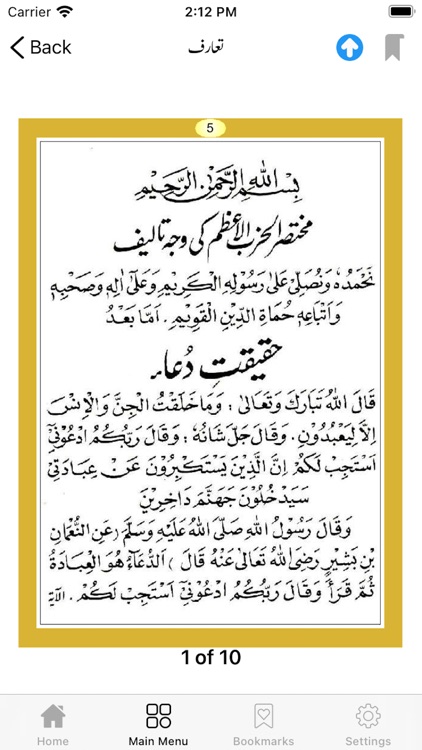 Carrier 2:12 PM
Back تعارف
5
بِسْمِ اللهِ الرَّحْمٰنِ الرَّحِيْمِ
مختصر الحزب الاعظم کی وجہ تالیف
نَحْمَدُهٗ وَنُصَلِّىْ عَلىٰ رَسُوْلِهِ الْكَرِيْمِ وَعَلىٰٓ اٰلِهٖ وَصَحْبِهٖ
وَاَتْبَاعِهٖ حُمَاةِ الدِّيْنِ الْقَوِيْمِ. اَمَّا بَعْدُ
حقیقتِ دُعاء
قَالَ اللهُ تَبَارَكَ وَتَعَالىٰ : وَمَا خَلَقْتُ الْجِنَّ وَالْاِنْسَ
اِلَّا لِيَعْبُدُوْنِ. وَقَالَ جَلَّ شَانُهٗ : وَقَالَ رَبُّكُمُ ادْعُوْنِىْٓ
اَسْتَجِبْ لَكُمْ اِنَّ الَّذِيْنَ يَسْتَكْبِرُوْنَ عَنْ عِبَادَتِىْ
سَيَدْخُلُوْنَ جَهَنَّمَ دَاخِرِيْنَ
وَقَالَ رَسُوْلُ اللهِ صَلَّى اللهُ عَلَيْهِ وَسَلَّمَ (عَنِ النُّعْمَانِ
بْنِ بَشِيْرٍ رَضِىَ اللهُ تَعَالىٰ عَنْهُ قَالَ) اَلدُّعَآءُ هُوَ الْعِبَادَةُ
ثُمَّ قَرَأَ وَقَالَ رَبُّكُمُ ادْعُوْنِىْٓ اَسْتَجِبْ لَكُمْ. الآية
1 of 10
Home Main Menu Bookmarks Settings